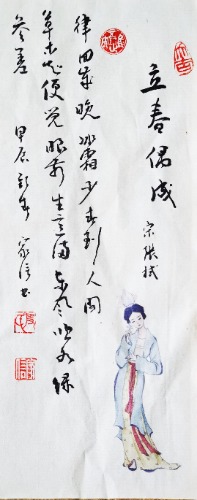 立春偶成
宋 张栻
律回岁晚冰霜少春到人间
草木知便觉眼前生意满东风吹水绿
参差 甲辰新年 家书